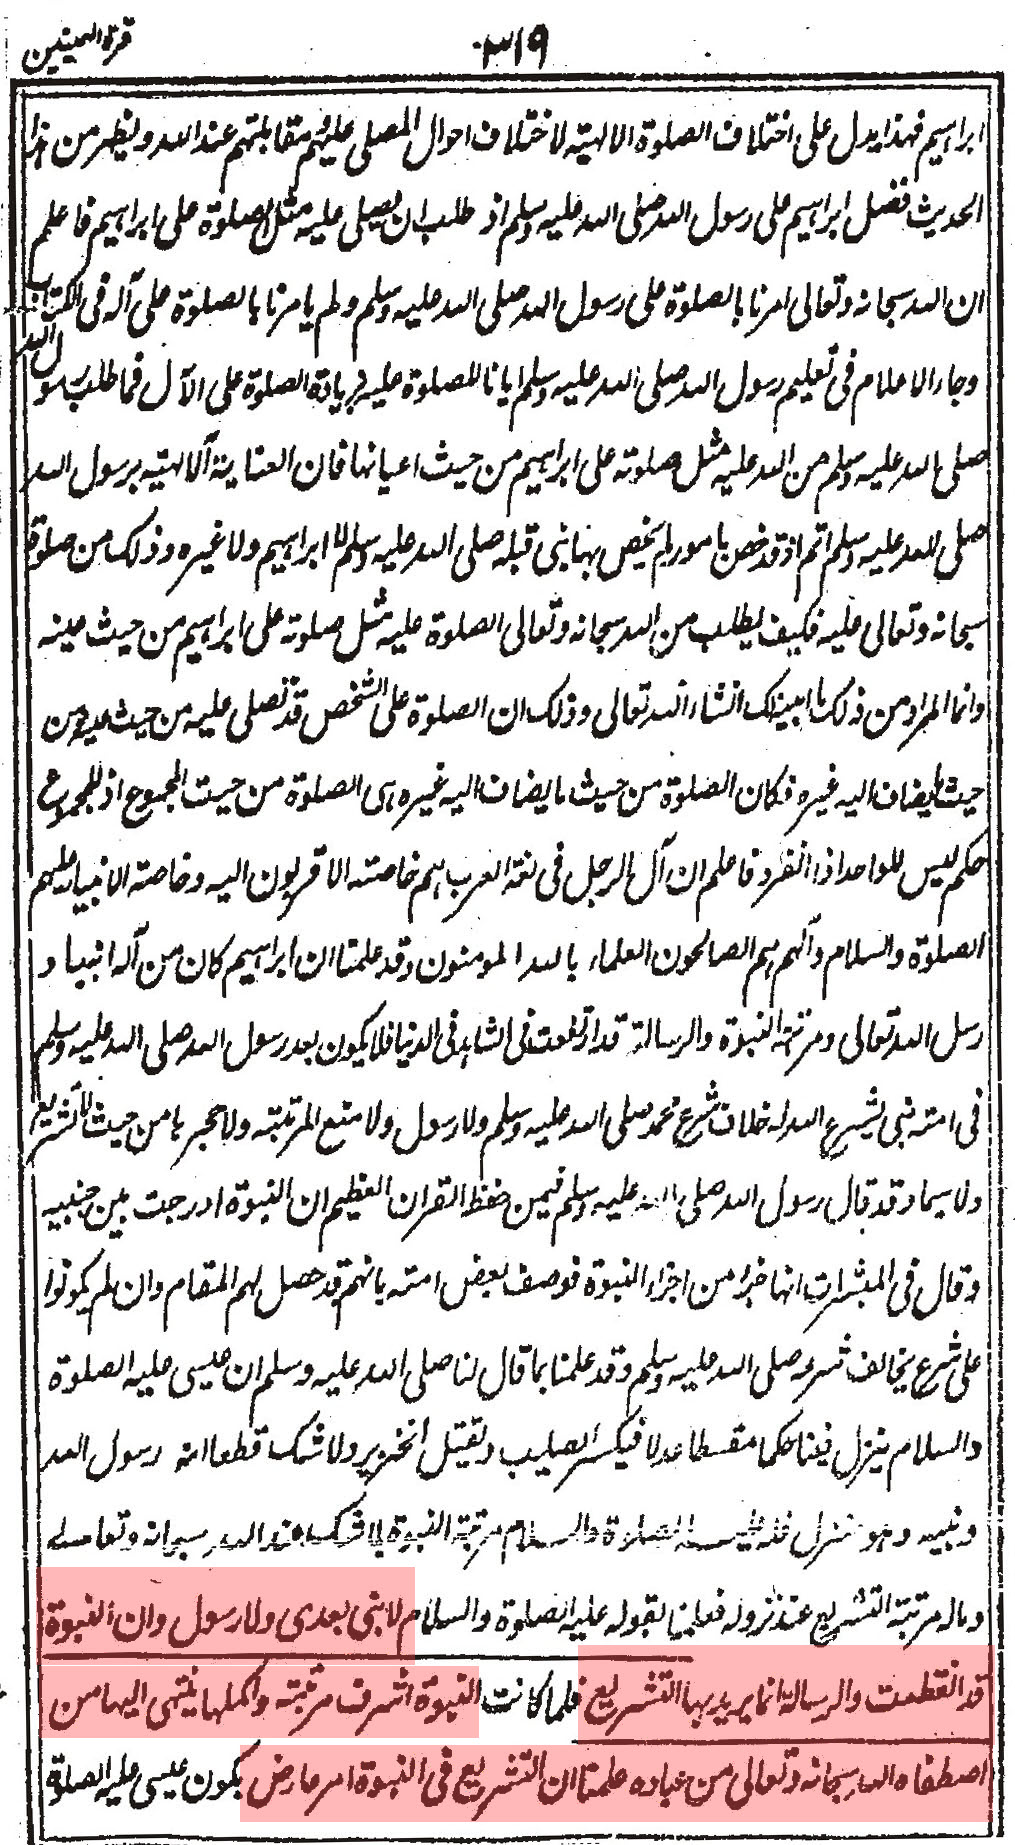 قرة العينين
۳۱۹
ابراہیم فہذا یدل علی اختلاف الصلوة الالہیة لاختلاف احوال المصلی علیہم و مقاماتہم عند اللہ ویظہر من ہذا
الحدیث فضل ابراہیم علی رسول اللہ صلی اللہ علیہ وسلم اذ طلب ان یصلی علیہ مثل الصلوة علی ابراہیم فاعلم
ان اللہ سبحانہ وتعالی امرنا بالصلوة علی رسول اللہ صلی اللہ علیہ وسلم ولم یامرنا بالصلوة علی آلہ فی الکتاب
وجاء الاعلام فی تعلیم رسول اللہ صلی اللہ علیہ وسلم ایانا الصلوة علیہ بزیادة الصلوة علی الآل فما طلب رسول اللہ
صلی اللہ علیہ وسلم من اللہ علیہ مثل صلوتہ علی ابراہیم من حیث اعیانہا فان العنایة الالہیہ برسول اللہ
صلی اللہ علیہ وسلم اتم اذ قد خص بامور لم یخص بہا نبی قبلہ صلی اللہ علیہ وسلم لا ابراہیم ولا غیرہ وذلک من صلوتہ
سبحانہ وتعالی علیہ فکیف یطلب من اللہ سبحانہ وتعالی الصلوة علیہ مثل صلوتہ علی ابراہیم من حیث عینہ
وانما المراد من ذلک ما ابینک انشاء اللہ تعالی وذلک ان الصلوة علی الشخص قد تصلی علیہ من حیث عینہ ومن
حیث ما یضاف الیہ غیرہ فکان الصلوة من حیث ما یضاف الیہ غیرہ ہی الصلوة من حیث المجموع اذ للمجموع
حکم لیس للواحد اذا انفرد فاعلم ان آل الرجل فی لغة العرب ہم خاصتہ الاقربون الیہ وخاصتہ الانبیاء علیہم
الصلوة والسلام وآلہم ہم الصالحون العلماء باللہ المومنون وقد علمنا ان ابراہیم کان من آلہ انبیاء و
رسل اللہ تعالی ومرتبة النبوة والرسالة قد ارتفعت فی الشاہد فی الدنیا فلا یکون بعد رسول اللہ صلی اللہ علیہ وسلم
فی امتہ نبی یشرع اللہ لہ خلاف شرع محمد صلی اللہ علیہ وسلم ولا رسول ولا منع المرتبتہ ولا حجرہا من حیث لا تشریع
ولا سیما وقد قال رسول اللہ صلی اللہ علیہ وسلم فیمن حفظ القران العظیم ان النبوة ادرجت بین جنبیہ
وقال فی المبشرات انہا جزء من اجزاء النبوة فوصف بعض امتہ بانہم قد حصل لہم المقام وان لم یکونوا
علی شرع یخالف شرعہ صلی اللہ علیہ وسلم وقد علمنا بما قال لنا صلی اللہ علیہ وسلم ان عیسی علیہ الصلوة
والسلام ینزل فینا حکما مقسطا عدلا فیکسر الصلیب ویقتل الخنزیر ولا شک قطعا انہ رسول اللہ
ونبیہ وہو ینزل فلہ علیہ الصلوة والسلام مرتبة النبوة بلا شک عند اللہ سبحانہ وتعالے
ومالہ مرتبة التشریع عند نزولہ فعلمنا بقولہ علیہ الصلوة والسلام لا نبی بعدی ولا رسول وان النبوة
قد انقطعت والرسالة انما یرید بہا التشریع فلما کانت النبوة اشرف مرتبتہ واکملہا ینتہی الیہا من
اصطفاہ اللہ سبحانہ وتعالی من عبادہ علمنا ان التشریع فی النبوة امر عارض بکون عیسی علیہ الصلوة